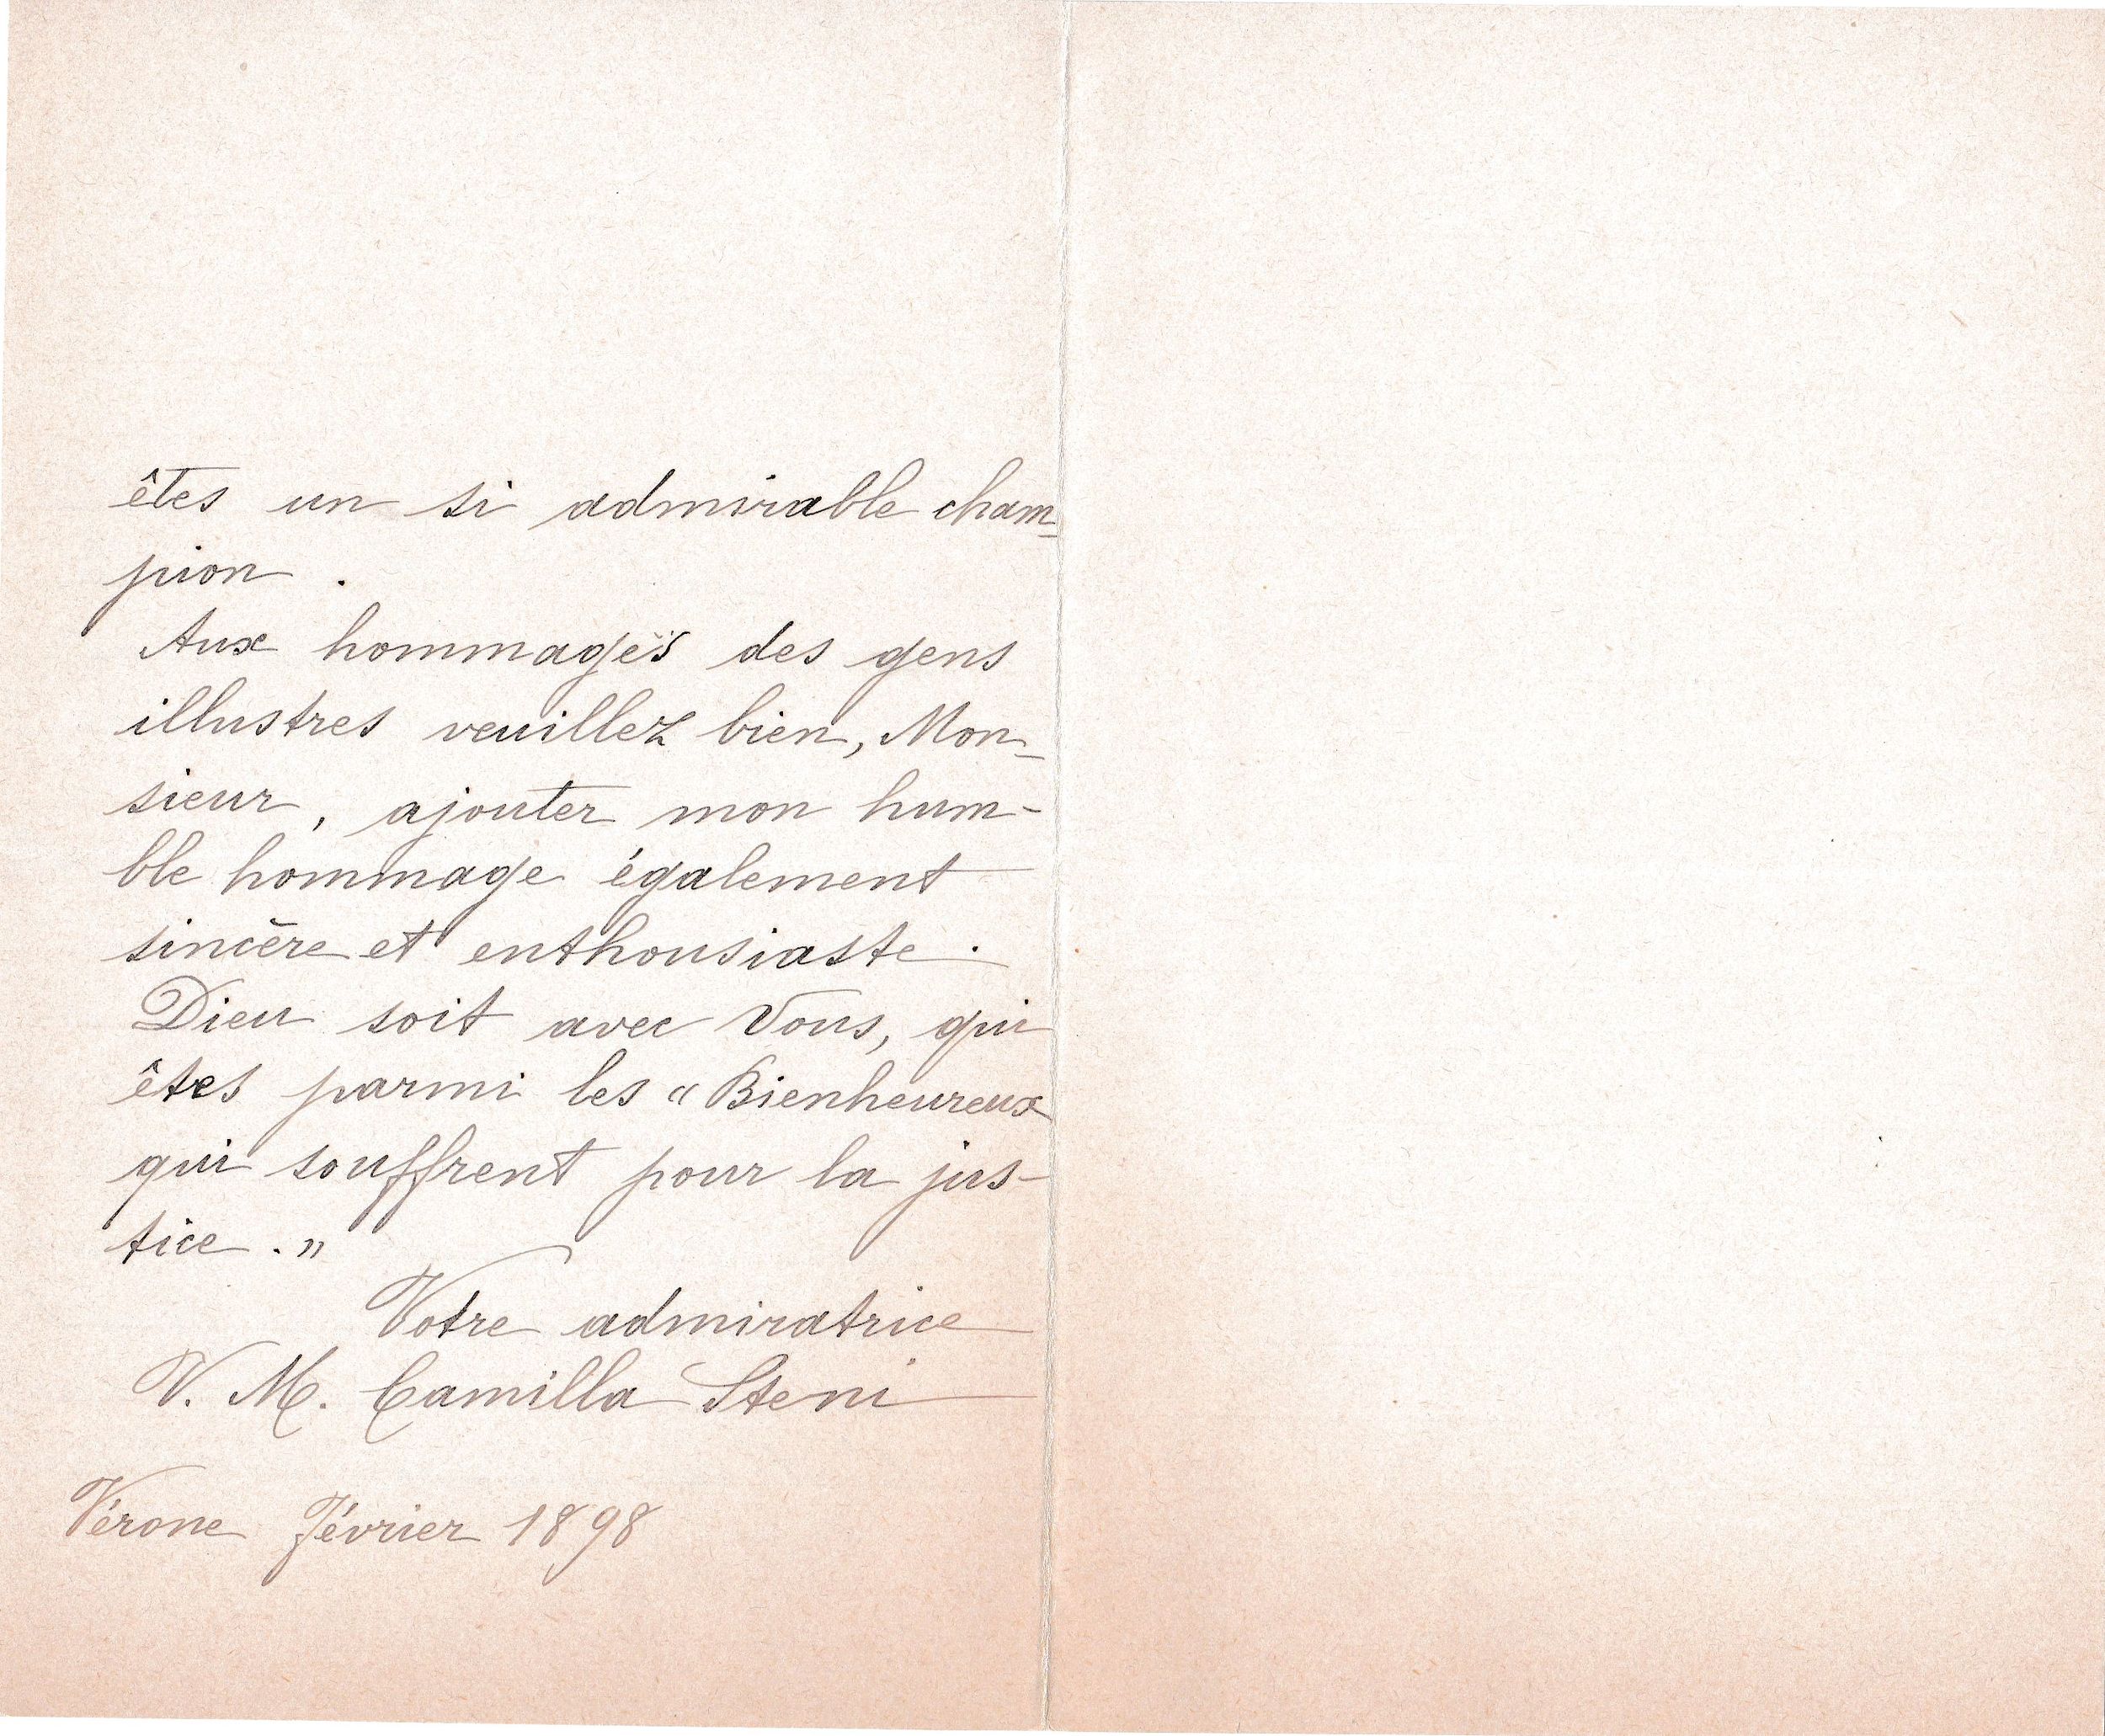 êtes un si admirable cham-
pion.
Aux hommages des gens
illustres veuillez bien, Mon-
sieur, ajouter mon hum-
ble hommage également
sincère et enthousiaste.
Dieu soit avec Vous, qui
êtes parmi les "Bienheureux
qui souffrent pour la jus-
tice."
Votre admiratrice
V. M. Camilla Steni
Vérone Février 1898